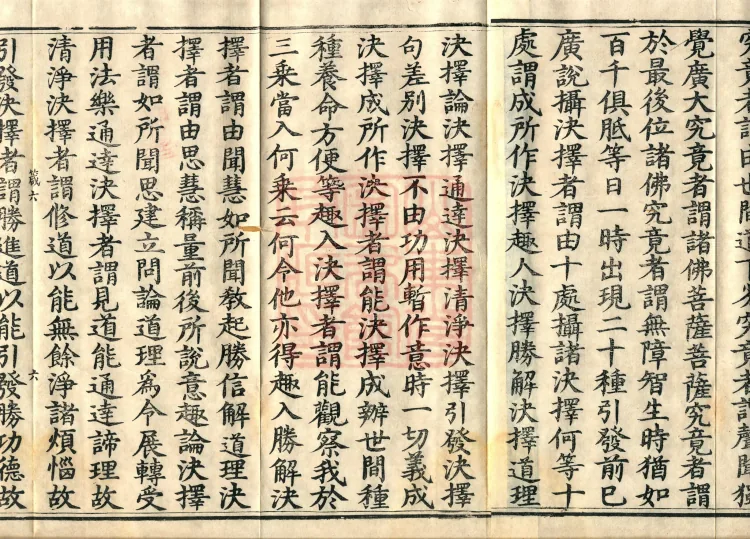 究竟者謂由世間道下劣究竟者謂聲聞獨
覺廣大究竟者謂諸佛菩薩菩薩究竟者謂
於最後位諸佛究竟者謂無障智生時猶如
百千俱胝等日一時出現二十種引發前已
廣說攝決擇者謂由十處攝諸決擇何等十
處謂成所作決擇趣人決擇勝解決擇道理
決擇論決擇通達決擇清淨決擇引發決擇
句差別決擇不由功用暫作意時一切義成
決擇成所作決擇者謂能決擇成辦世間種
種養命方便等趣入決擇者謂能觀察我於
三乘當入何乘云何令他亦得趣入勝解決
擇者謂由聞慧如所聞教起勝信解道理決
擇者謂由思慧稱量前後所說意趣論決擇
者謂如所聞思建立問論道理爲令展轉受
用法樂通達決擇者謂見道能通達諦理故
清淨決擇者謂修道以能無餘淨諸煩惱故
箴六 六
引發決擇者謂勝進道以能引發勝功德故